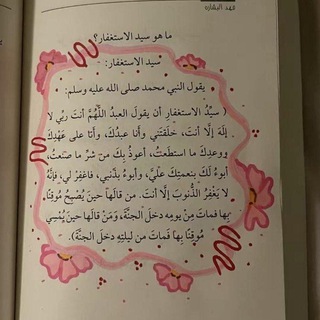 عهد البشارة
ما هو سيد الاستغفار؟
سيد الاستغفار:
يقول النبي محمد صلى الله عليه وسلم:
( سيِّدُ الاستغفارِ أن يقولَ العبدُ اللَّهُمَّ أنتَ ربِّي لا
إلَهَ إلَّا أنتَ، خلَقتَني وأنا عبدُكَ، وأنا على عَهْدِكَ
ووعدِكَ ما استطَعتُ، أعوذُ بِكَ من شرِّ ما صنَعتُ،
أبوءُ لَكَ بنعمتِكَ عليَّ، وأبوءُ بذَنبي، فاغفِر لي، فإنَّهُ
لا يَغفِرُ الذُّنوبَ إلَّا أنتَ. من قالَها حينَ يُصْبِحُ مُوقِنًا
بِها فماتَ مِن يومِهِ دخلَ الجنَّةَ، وَمَنْ قالَها حينَ يُمْسِي
مُوقِنًا بِها فَماتَ من ليلتِهِ دخلَ الجنَّةَ).